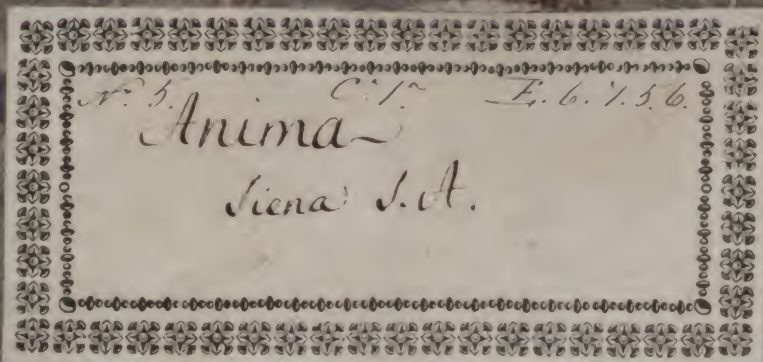 N.º 5. C. 1.ª E. 6. 1. 5. 6.
Anima
Siena S. A.